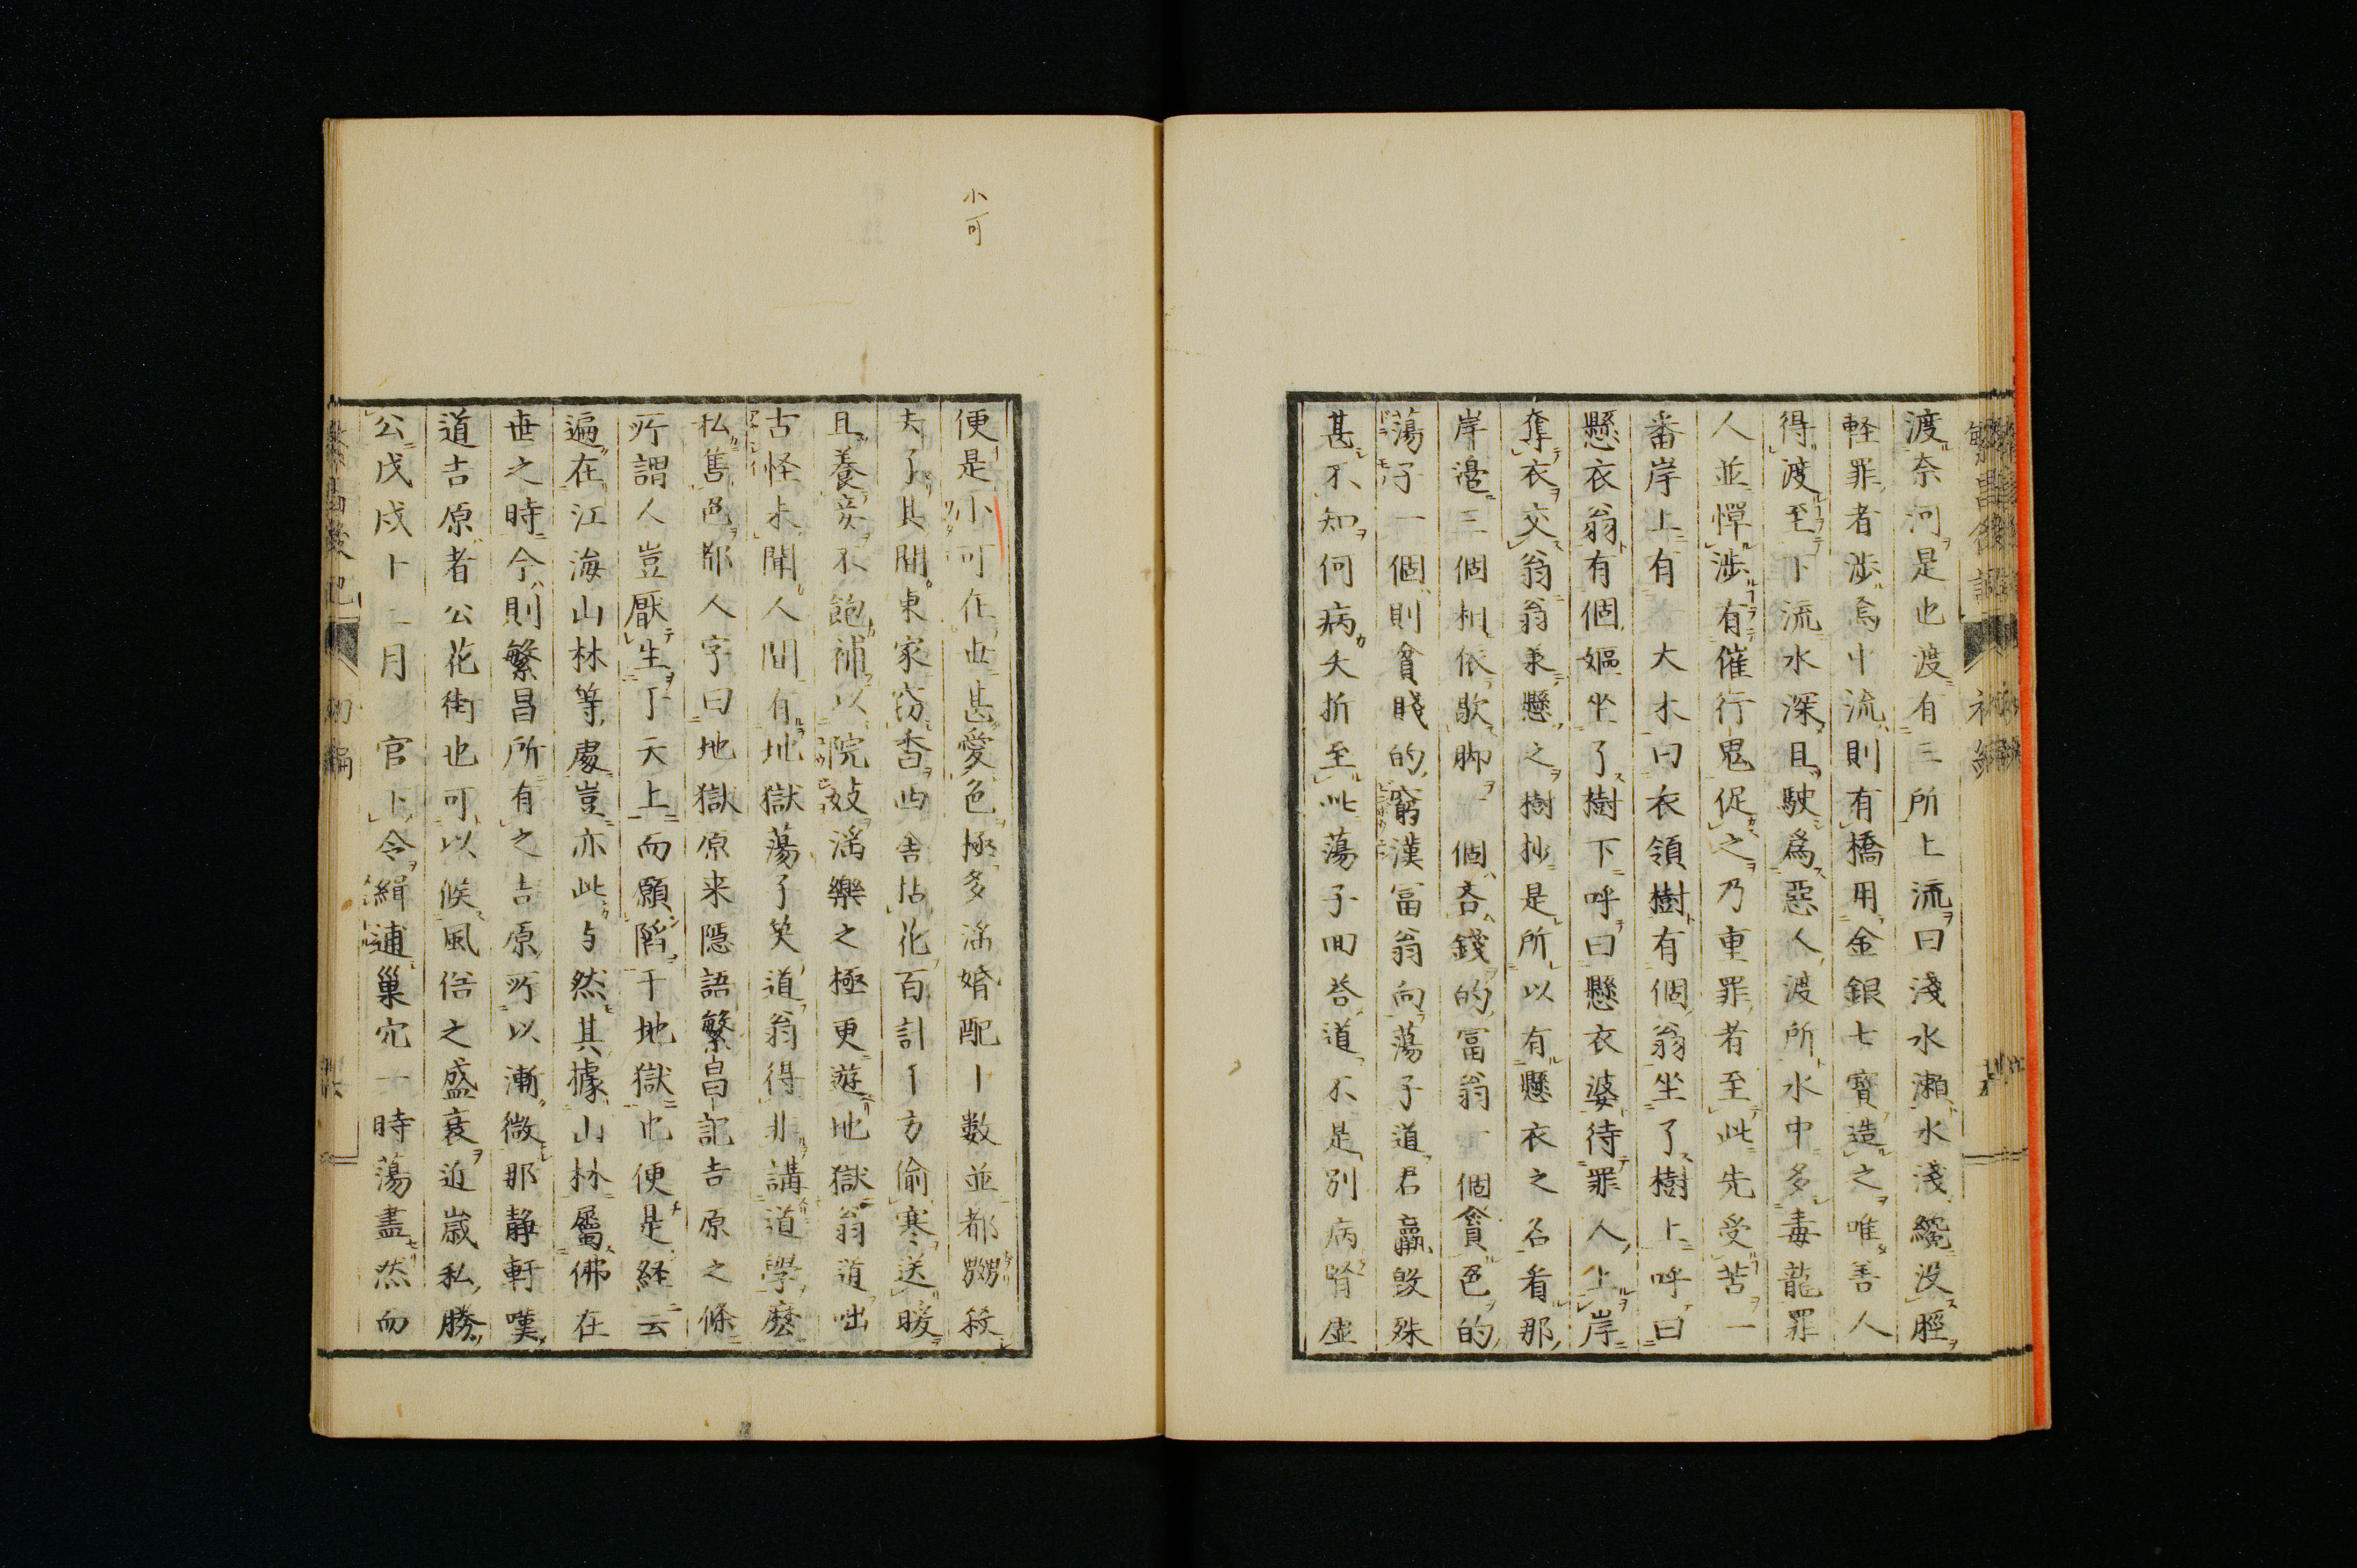 渡奈河是也渡有三所上流曰淺水瀬水淺纔没脛
軽罪者渉焉中流則有橋用金銀七寳造之唯善人
得渡至下流水深且駛爲惡人渡所水中多毒龍罪
人並憚渉有催行鬼促之乃重罪者至此先受苦一
番岸上有大木曰衣領樹有個翁坐了樹上呼曰
懸衣翁有個嫗坐了樹下呼曰懸衣婆待罪人上岸
奪衣交翁翁兼懸之樹抄是所以有懸衣之名看那
岸邉三個相依歇脚一個吝錢的富翁一個貪色的
蕩子一個則貧賤的窮漢富翁向蕩子道君羸毀殊
甚不知何病夭折至此蕩子回荅道不是別病腎虚
小可
便是小可在世甚愛色極多滛婚配丨数並都嬲殺
夫了其間東家窃香西舎拈花百計千方偷寒送暖
且養妾不飽補以院妓滛樂之極更遊地獄翁道咄
古怪未聞人間有地獄蕩子笑道翁得非講道學麽
私售色都人字曰地獄原来隠語繁昌記吉原之條
所謂人豈厭生了天上而願䧟于地獄也便是経云
遍在江海山林等處豈亦此与然其據山林屬佛在
世之時今則繁昌所有之吉原所以漸微那静軒嘆
道吉原者公花街也可以候風俗之盛衰近歳私勝
公戊戌十二月官下令緝逋巣穴一時蕩盡然而